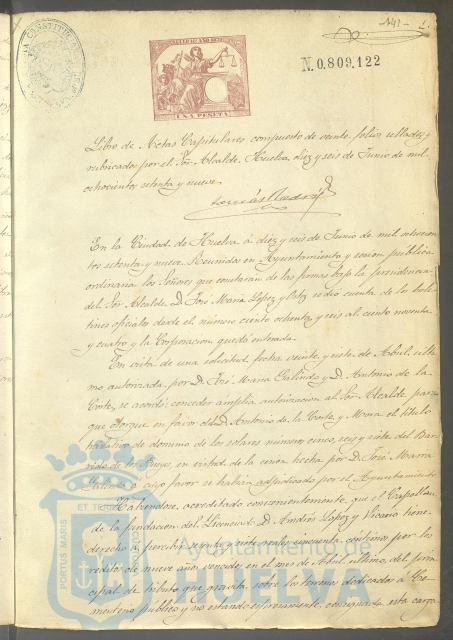 141-
N. 0.809.122
UNA PESETA
Libro de Actas Capitulares compuesto de veinte folios sellados y
rubricados por el Sor. Alcalde. Huelva, diez y seis de Junio de mil
ochocientos setenta y nueve.
En la Ciudad de Huelva á diez y seis de Junio de mil ochocien-
tos setenta y nueve. Reunidos en Ayuntamiento y sesion pública
ordinaria los Señores que constarán de las firmas bajo la presidencia
del Sor. Alcalde D. José Maria Lopez y se dió cuenta de los bole-
tines oficiales desde el número ciento ochenta y seis al ciento noventa
y cuatro y la Corporacion quedó enterada.
En vista de una solicitud fecha veinte y siete de Abril últi-
mo, autorizada por D. José Maria Galindo y D. Antonio de la
Corte, se acordó conceder amplia autorizacion al Sor. Alcalde para
que otorgue en favor de D. Antonio de la Corte y Mora el título
de dominio de los solares números cinco, seis y siete del Bar-
rio de en virtud de la cesion hecha por D. José Maria
Galindo a cuyo favor se habian adjudicado por el Ayuntamiento
Habiendose acreditado convenientemente que el Capellan
de la fundacion del Licenciado D. Andrés Lopez y Vicario tiene
derecho á percibir sesenta y siete reales cincuenta centimos por los
reditos de nueve años vencidos en el mes de Abril último, del prin-
cipal de tributo que gravita sobre los terrenos dedicados á Ce-
menterio público y no estando expresamente consignada esta carga
PORTUS MARIS
ET TERRAE
CUSTODIA
Ayuntamiento de
HUELVA